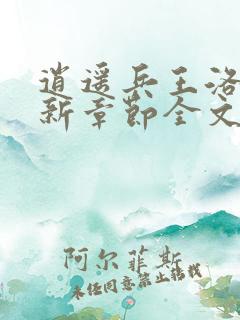 逍遥兵王洛
新章节全文
阿尔菲斯
未经同意禁止转载